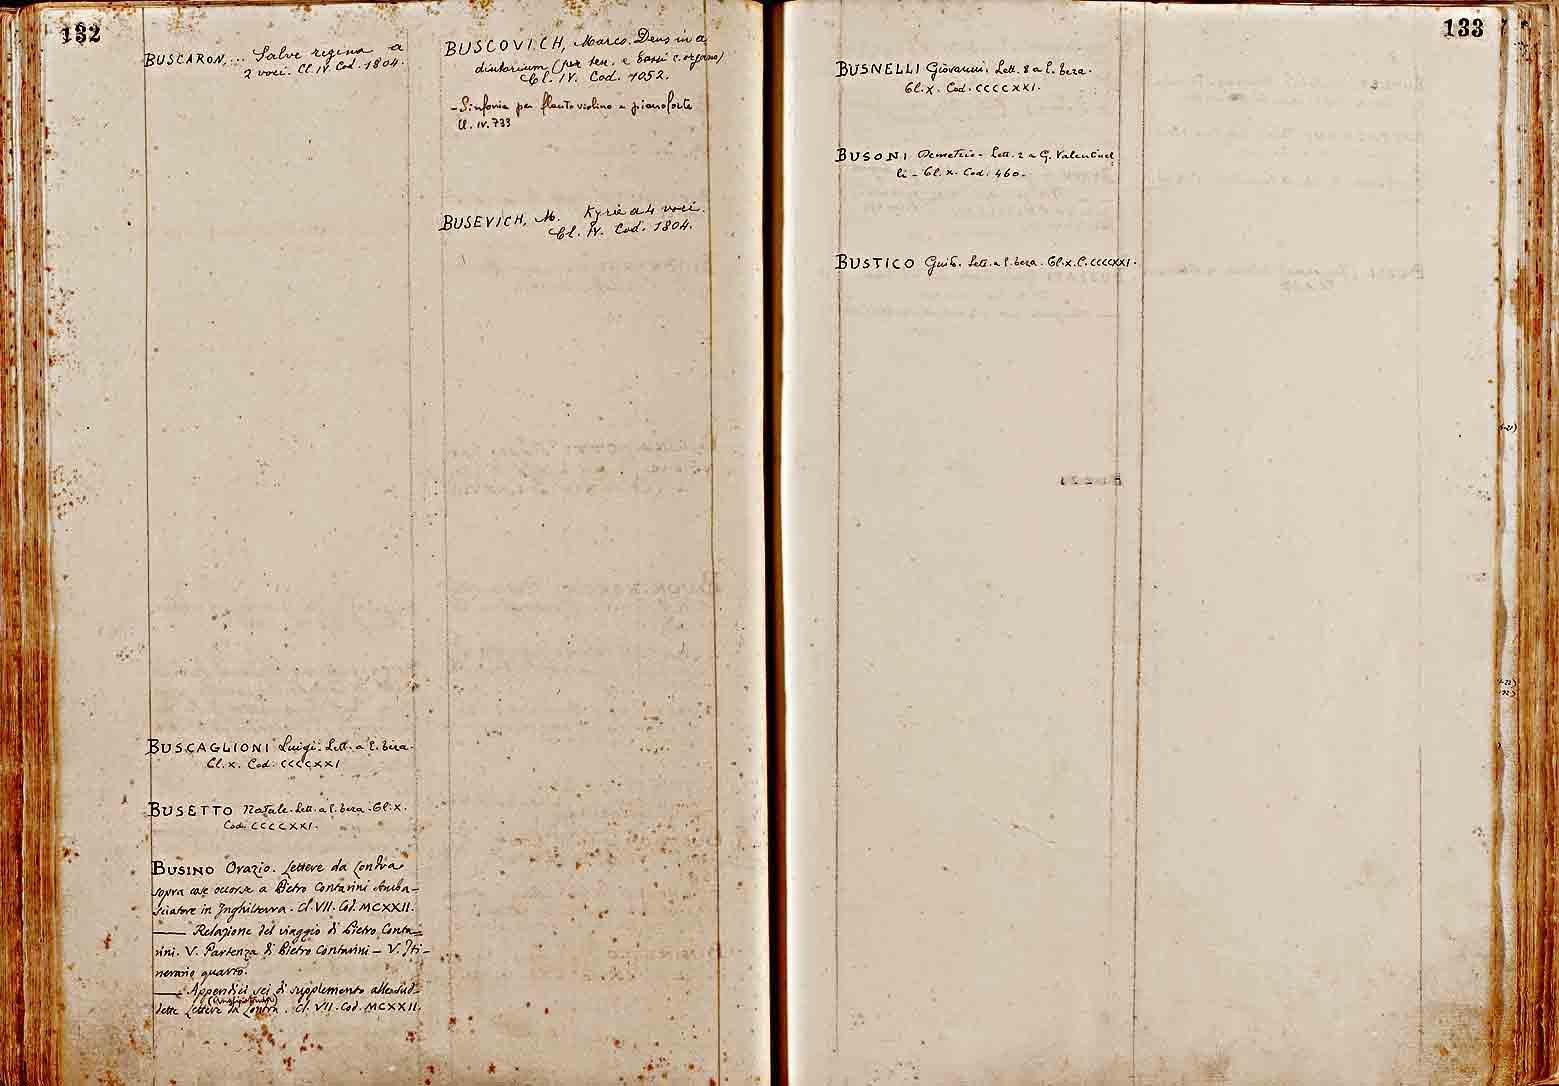 132
BUSCARON, ... Salve regina a
2 voci. Cl. IV. Cod. 1804.
BUSCAGLIONI Luigi. Lett. a E. beza.
Cl. X. Cod. CCCCXXI
BUSETTO Natale. Lett. a E. beza. Cl. X.
Cod. CCCCXXI.
BUSINO Orazio. Lettere da Londra
sopra cose occorse a Pietro Contarini Amba-
sciatore in Inghilterra. Cl. VII. Cod. MCXXII.
—— Relazione del viaggio di Pietro Conta=
rini. V. Partenza di Pietro Contarini — V. Iti-
nerario quarto.
—— Appendici sei di supplemento alle sud-
dette Lettere da Londra. Cl. VII. Cod. MCXXII.
BUSCOVICH, Marco. Deus in a
diutorium (per ten. e bassi c. organo)
Cl. IV. Cod. 1052.
- Sinfonia per flauto violino e pianoforte
Cl. IV. 733
BUSEVICH, M. Kyrie a 4 voci.
Cl. IV. Cod. 1804.
133
BUSNELLI Giovanni. Lett. 8 a E. beza.
Cl. X. Cod. CCCCXXI.
BUSONI Demetrio - Lett. 2 a G. Valentinel
li - Cl. X. Cod. 460.
BUSTICO Guid. Lett. a E. beza. Cl. X. C. CCCCXXI.